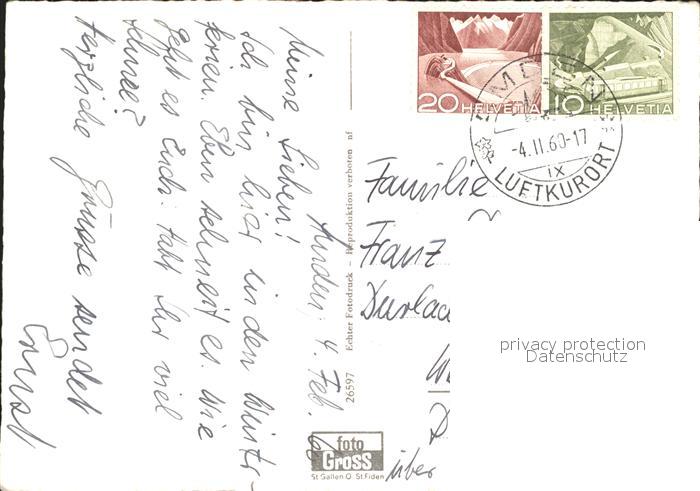 Amden, 4. Feb. 60
Meine Lieben!
Ich bin hier in den Winter-
ferien. Eben schneit es. Wie
geht es Euch? Habt Ihr viel
Schnee?
Herzliche Grüsse sendet
Ernst
26597 Echter Fotodruck – Reproduktion verboten nf
foto
Gross
St Gallen O. St.Fiden
20 HELVETIA
10 HELVETIA
AMDEN
-4.II.60-17
IX
LUFTKURORT
Familie
Franz
Durlac
über
privacy protection
Datenschutz